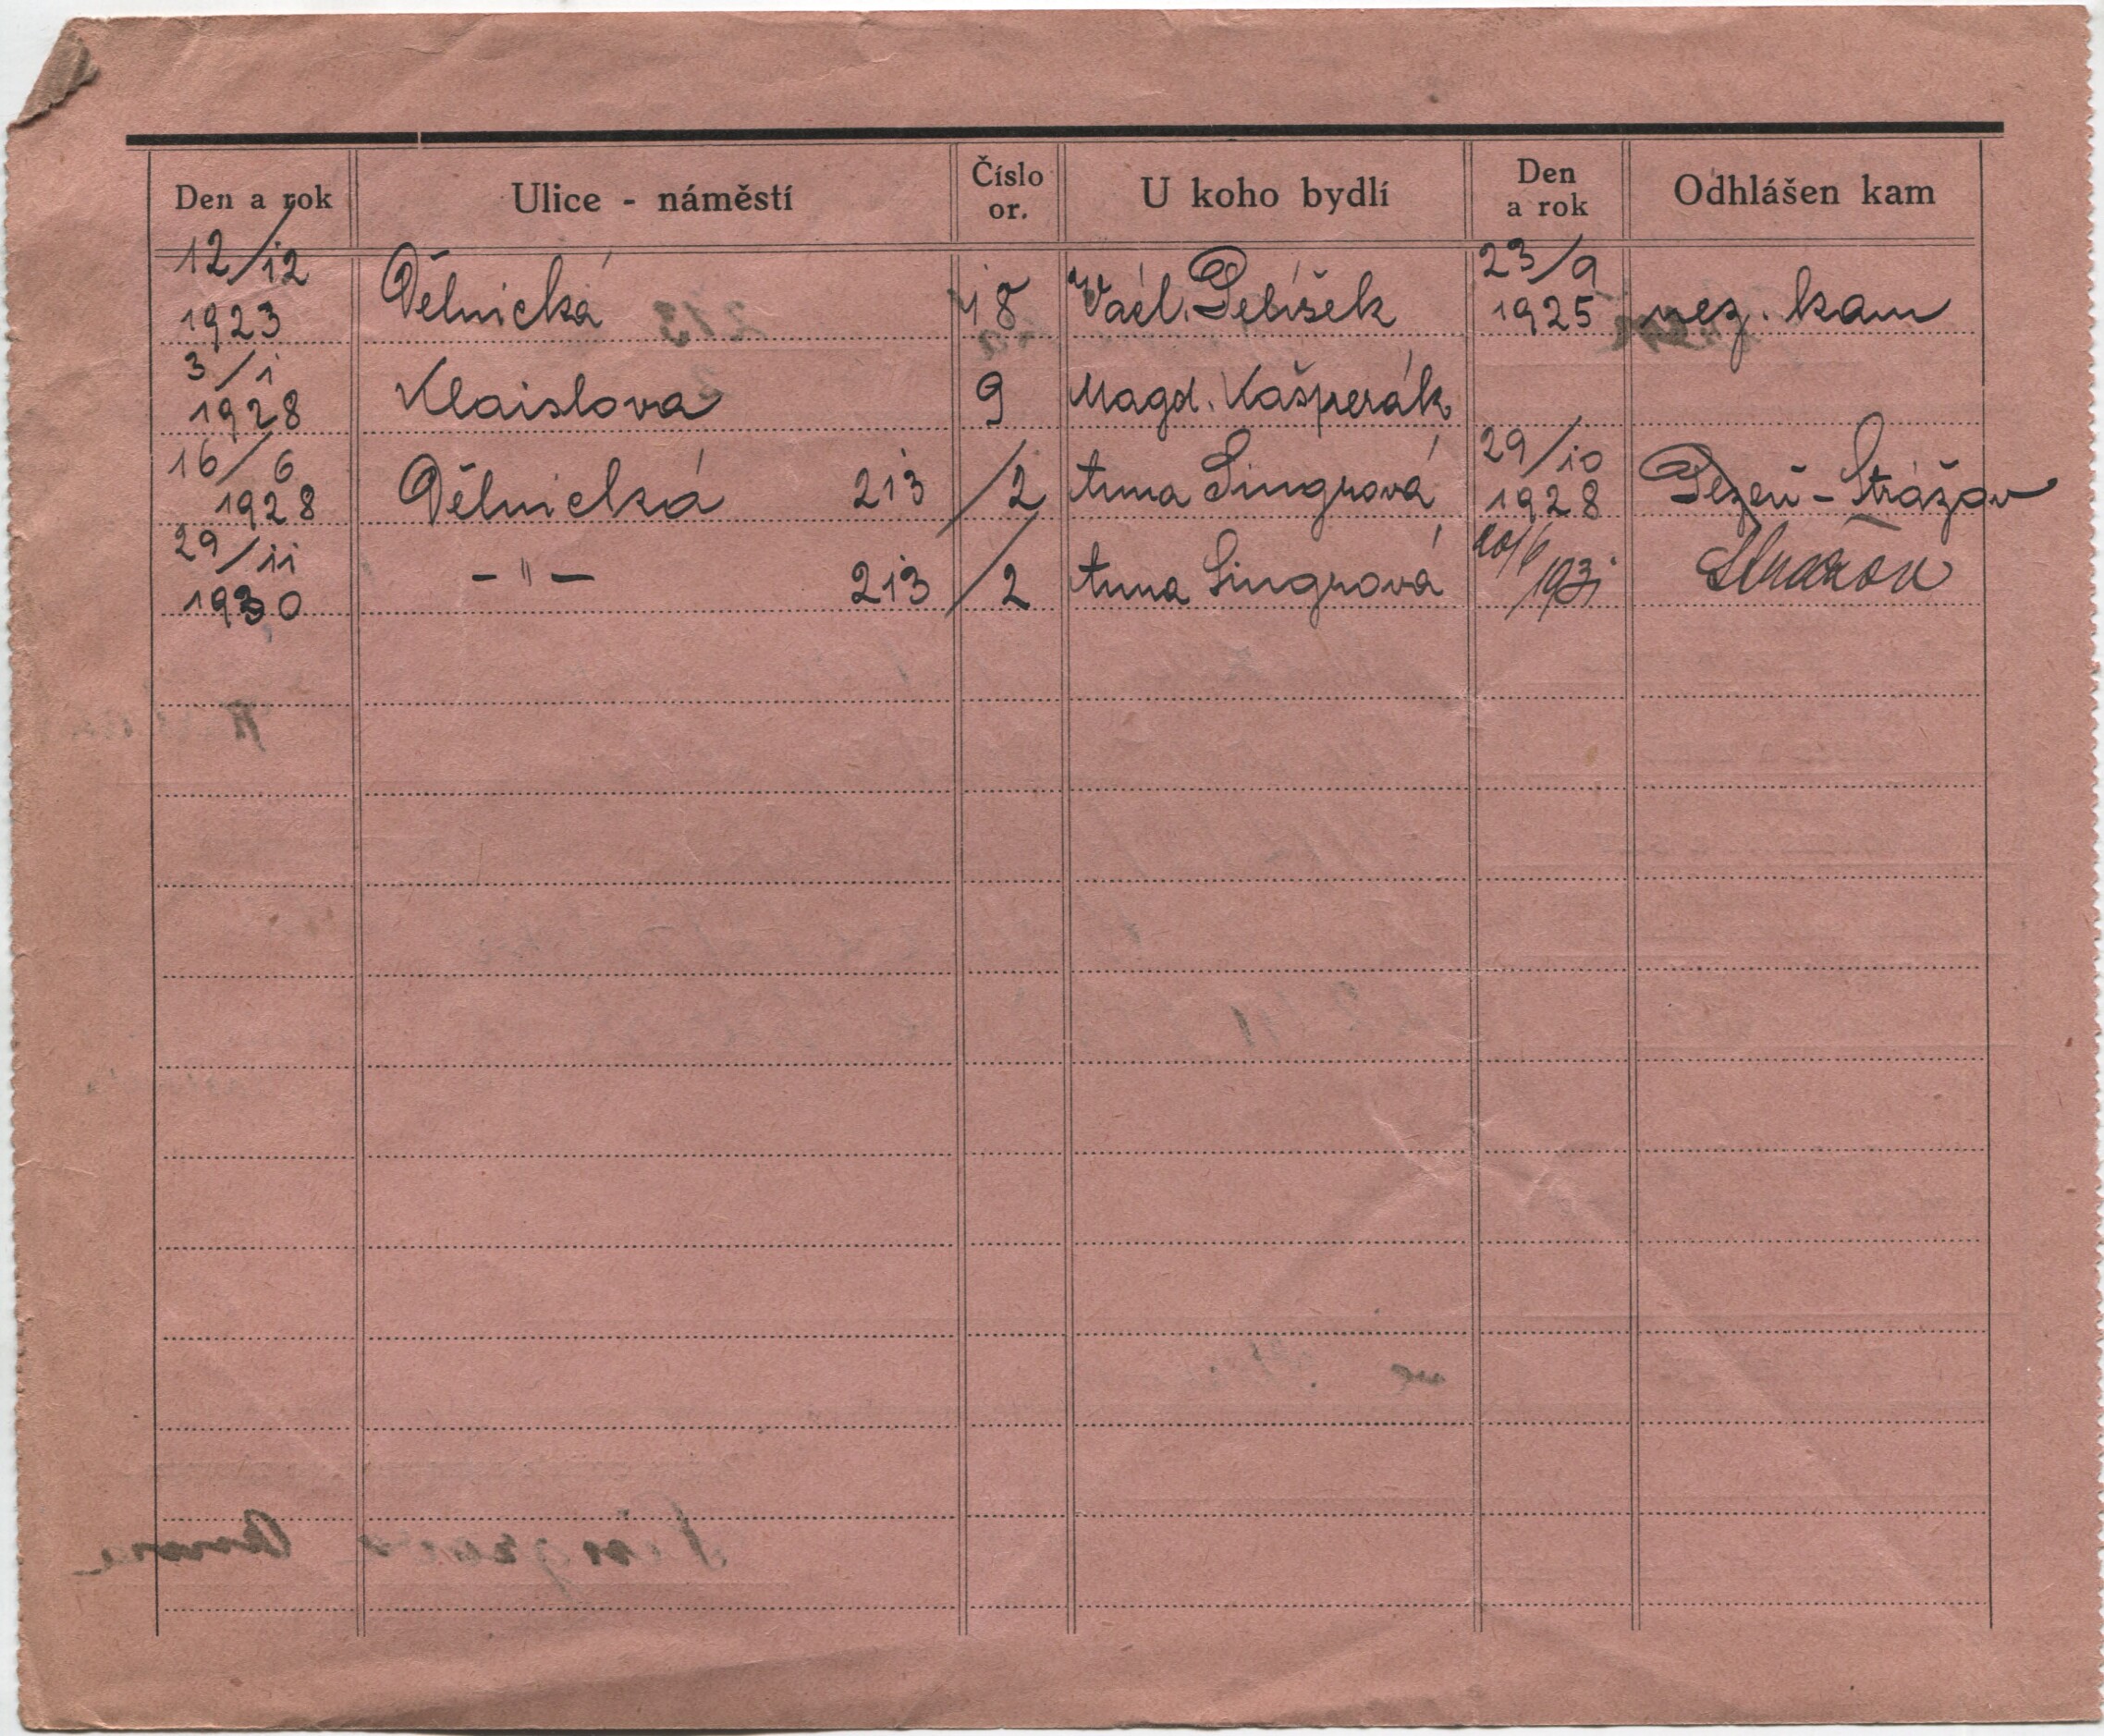 Den a rok Ulice - náměstí Číslo or. U koho bydlí Den a rok Odhlášen kam
12/12 1923 Dělnická 18 Václ. Pebíšek 23/9 1925 nez. kam
3/1 1928 Klaislova 9 Magd. Kašperák
16/6 1928 Dělnická 213/2 Anna Singrová 29/10 1928 Strážov
29/11 1930 - " - 213/2 Anna Singrová 1931 Strážov